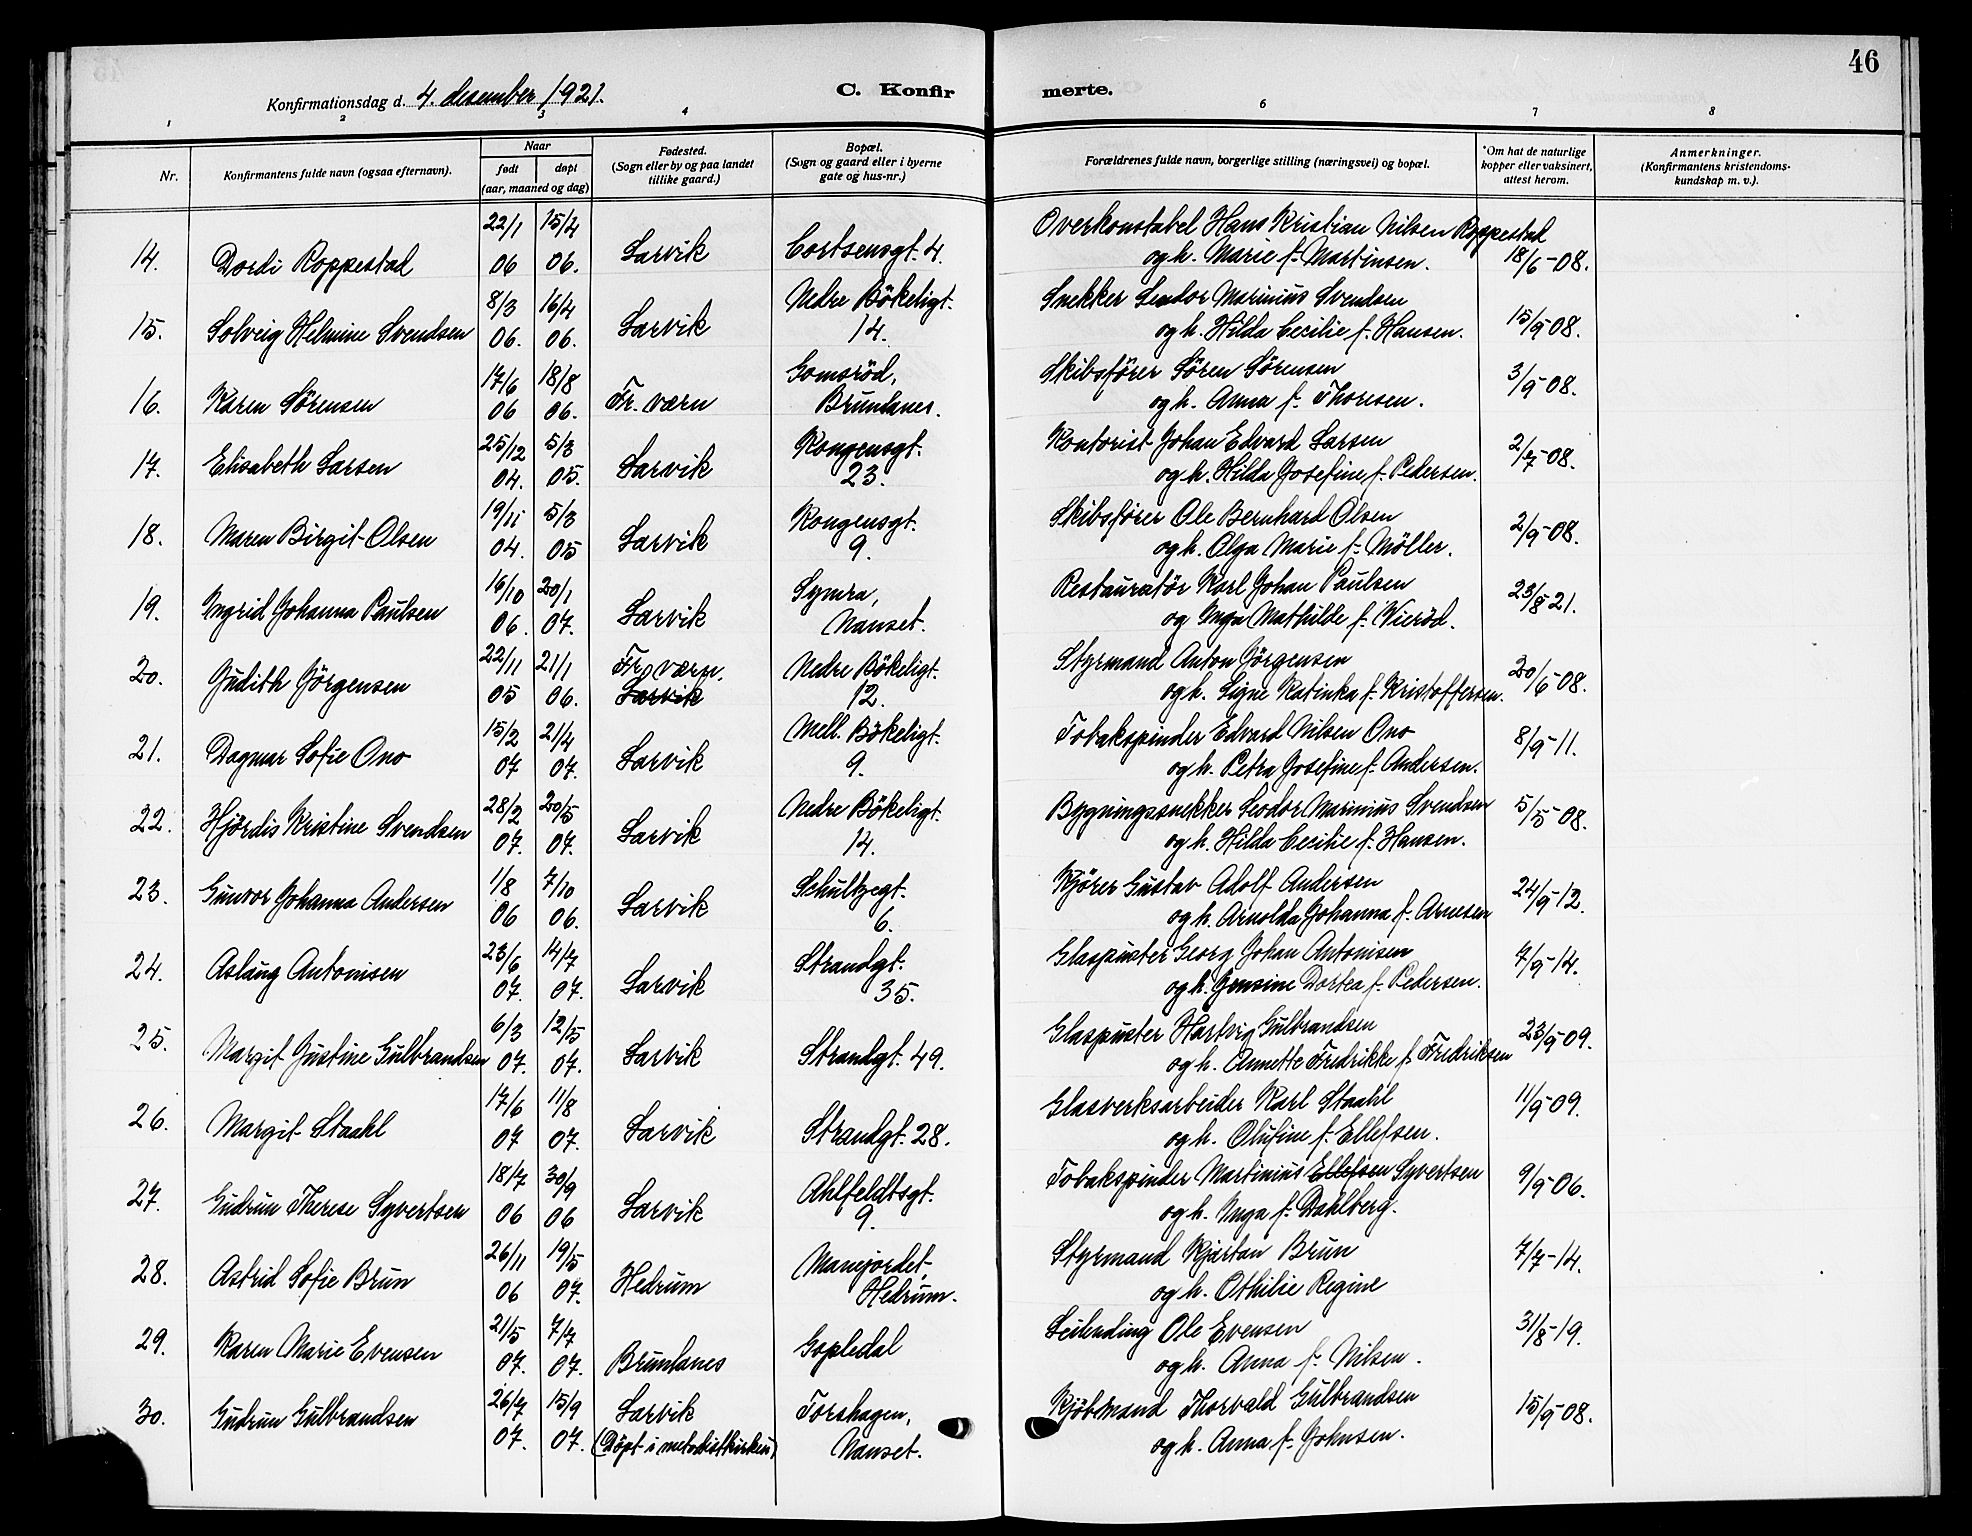 46
Konfirmationsdag d. 4. desember 1921.
C. Konfir merte.
1 2 3 4 6 7 8
Nr.
Konfirmantens fulde navn (ogsaa efternavn).
Naar
født døpt
(aar, maaned og dag)
Fødested.
(Sogn eller by og paa landet
tillike gaard.)
Bopæl.
(Sogn og gaard eller i byerne
gate og hus-nr.)
Forældrenes fulde navn, borgerlige stilling (næringsvei) og bopæl.
*Om hat de naturlige
kopper eller vaksinert,
attest herom.
Anmerkninger.
(Konfirmantens kristendoms-
kundskap m. v.).
22/1 15/4 Overkonstabel Hans Kristian Nilsen Roppestad
14. Dordi Roppestad 06 06. Larvik Cortsensgt. 4. og h. Marie f. Martinsen. 18/6-08.
8/3 16/4 Nedre Bökeligt. Snekker Leodor Marinius Svendsen
15. Solveig Helmine Svendsen 06. 06. Larvik 14. og h. Hilda Cecilie f. Hansen. 15/9-08.
17/6 18/8 Gomsröd, Skibsförer Sören Sörensen
16. Karen Sörensen 06 06. Fr. værn Brunlanes. og h. Anna f. Thoresen. 3/9-08.
25/12 5/3 Kongensgt. Kontorist Johan Edvard Larsen
17. Elisabeth Larsen 04. 05. Larvik 23. og h. Hilda Josefine f. Pedersen. 2/7-08.
19/11 5/3 Kongensgt. Skibsförer Ole Bernhard Olsen
18. Maren Birgit Olsen 04. 05 Larvik 9. og h. Olga Marie f. Möller. 2/9-08.
16/10 20/1 Symra, Restauratör Karl Johan Paulsen
19. Ingrid Johanna Paulsen 06. 07. Larvik Nanset. og Inga Mathilde f. Vieröd. 23/8-21.
22/11 21/1 Fr. værn. Nedre Bökeligt. Styrmand Anton Jörgensen
20. Judith Jörgensen 05 06. Larvik 12. og h. Signe Katinka f. Kristoffersen. 20/6-08.
15/2 21/4 Mell. Bökeligt. Tobakspinder Edvard Nilsen Ono
21. Dagmar Sofie Ono 07 07. Larvik 9. og h. Petra Josefine f. Andersen. 8/9-11.
28/2 20/5 Nedre Bökeligt. Bygningssnekker Leodor Marinius Svendsen
22. Hjördis Kristine Svendsen 07. 07. Larvik 14. og h. Hilda Cecilie f. Hansen. 5/5-08.
1/8 7/10 Schultzegt. Kjörer Gustav Adolf Andersen
23. Gunvor Johanna Andersen 06 06. Larvik 6. og h. Arnolda Johanna f. Arnesen 24/9-12.
23/6 14/7 Strandgt. Glaspuster Georg Johan Antonisen
24. Aslaug Antonisen 07. 07. Larvik 35. og h. Jensine Dortea f. Pedersen. 7/9-14.
6/3 12/5 Glaspuster Hartvig Gulbrandsen
25. Margit Justine Gulbrandsen 07. 07. Larvik Strandgt. 49. og h. Annette Fredrikke f. Fredriksen 23/9-09.
17/6 11/8 Glasverksarbeider Karl Staahl
26. Margit Staahl 07 07. Larvik Strandgt. 28. og h. Olufine f. Ellefsen. 11/9-09.
18/7 30/9 Ahlfeldtsgt. Tobakspinder Martinius Ellefsen Syvertsen
27. Gudrun Therese Syvertsen 06 06 Larvik 9. og h. Inga f. Dahlberg. 9/9-06.
26/11 19/5 Manejordet, Styrmand Kjartan Brun
28. Astrid Sofie Brun 06 07. Hedrum Hedrum. og h. Othilie Regine 7/7-14.
21/5 7/7 Leilending Ole Evensen
29. Karen Marie Evensen 07. 07. Brunlanes Gopledal og h. Anna f. Nilsen. 31/8-19.
26/7 15/9 Larvik Torshagen, Kjöbmand Thorvald Gulbrandsen
30. Gudrun Gulbrandsen 07. 07. (Döpt i metodistkirken) Nanset. og h. Anna f. Johnsen. 15/9-08.